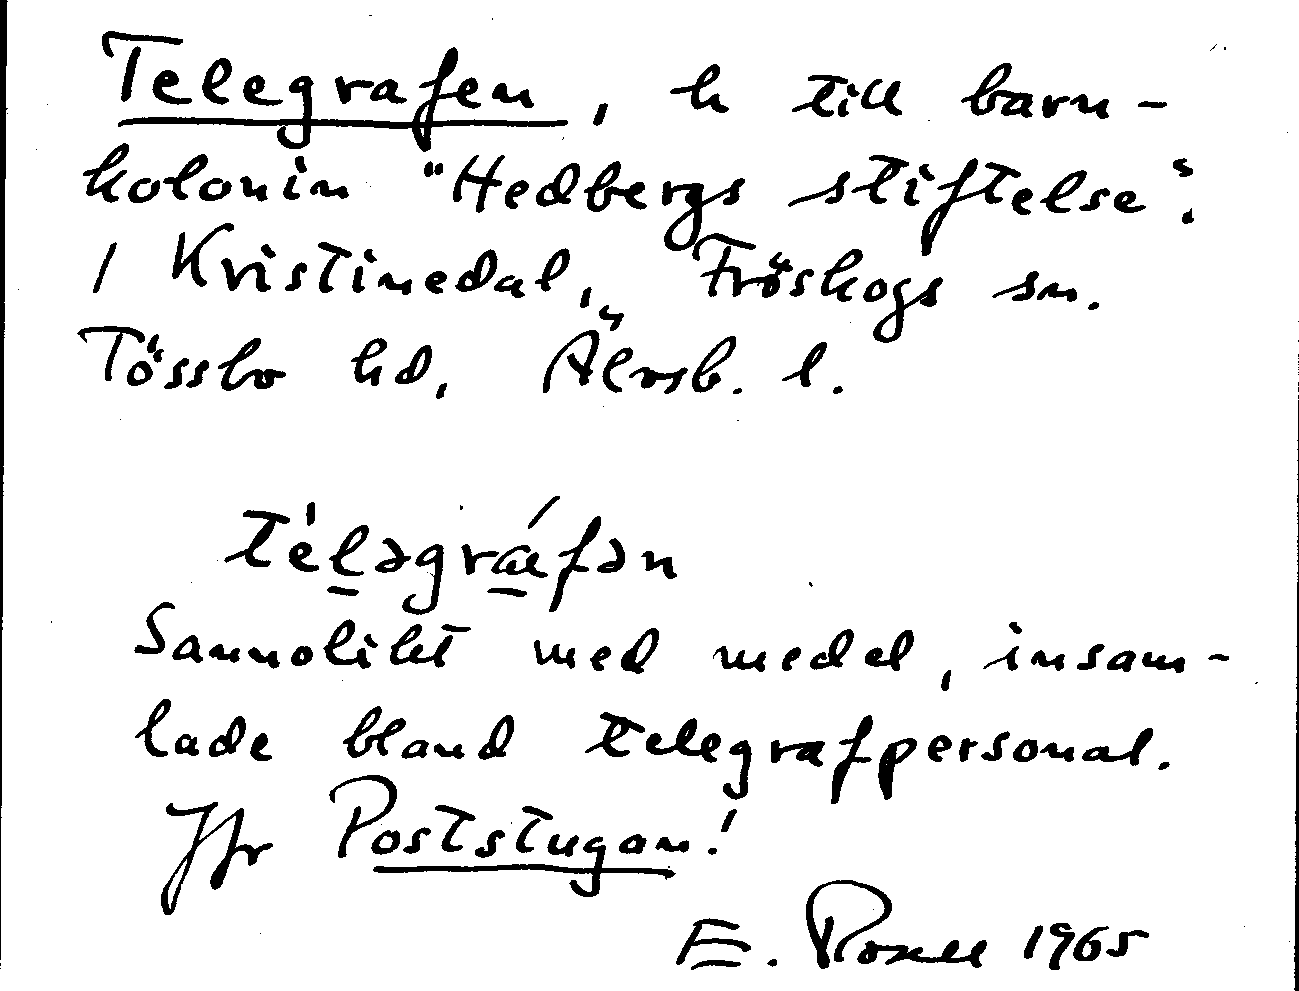 Telegrafen, h till barn-
kolonin "Hedbergs stiftelse".
1 Kristinedal, Fröskogs sn.
Tössbo hd, Älvsb. l.
té̀lәgráfәn
Sannolikt med medel, insam-
lade bland telegrafpersonal.
Jfr Poststugan!
E. Rosell 1965